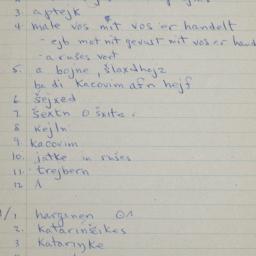 3. aptejk
4. male vos mit vos er handelt
- ejb mot nit gevust mit vos er hand
- a rušes vert
5. a bojne, šlaxthojz
ba di kacovim afn hojf
6. šejxed
7. šextn
8. kejln
9. kacovim
10. jatke in rušes
11. trejbern
12. 1
1. harginen 01
2. katarinčikes
3. katarinke